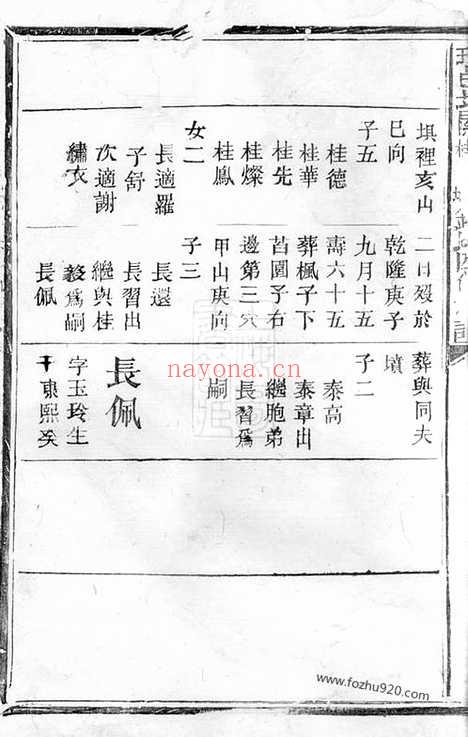 填裡亥山
巳向
子五
桂德
桂華
桂先
桂燦
桂鳳
女二
長適羅
予舒
次適謝
繡衣
二日歿於
乾隆庚子
九月十五
壽六十五
葬楓子下
苢園子右
邊第三穴
甲山庚向
子三
長還
長習出
繼與桂
爲嗣
長佩
葬與同夫
墳
子二
泰高
泰章出
繼胞弟
長習爲
嗣
長佩
字玉玲生
康熙癸
nayona.cn
www.fozhu920.com